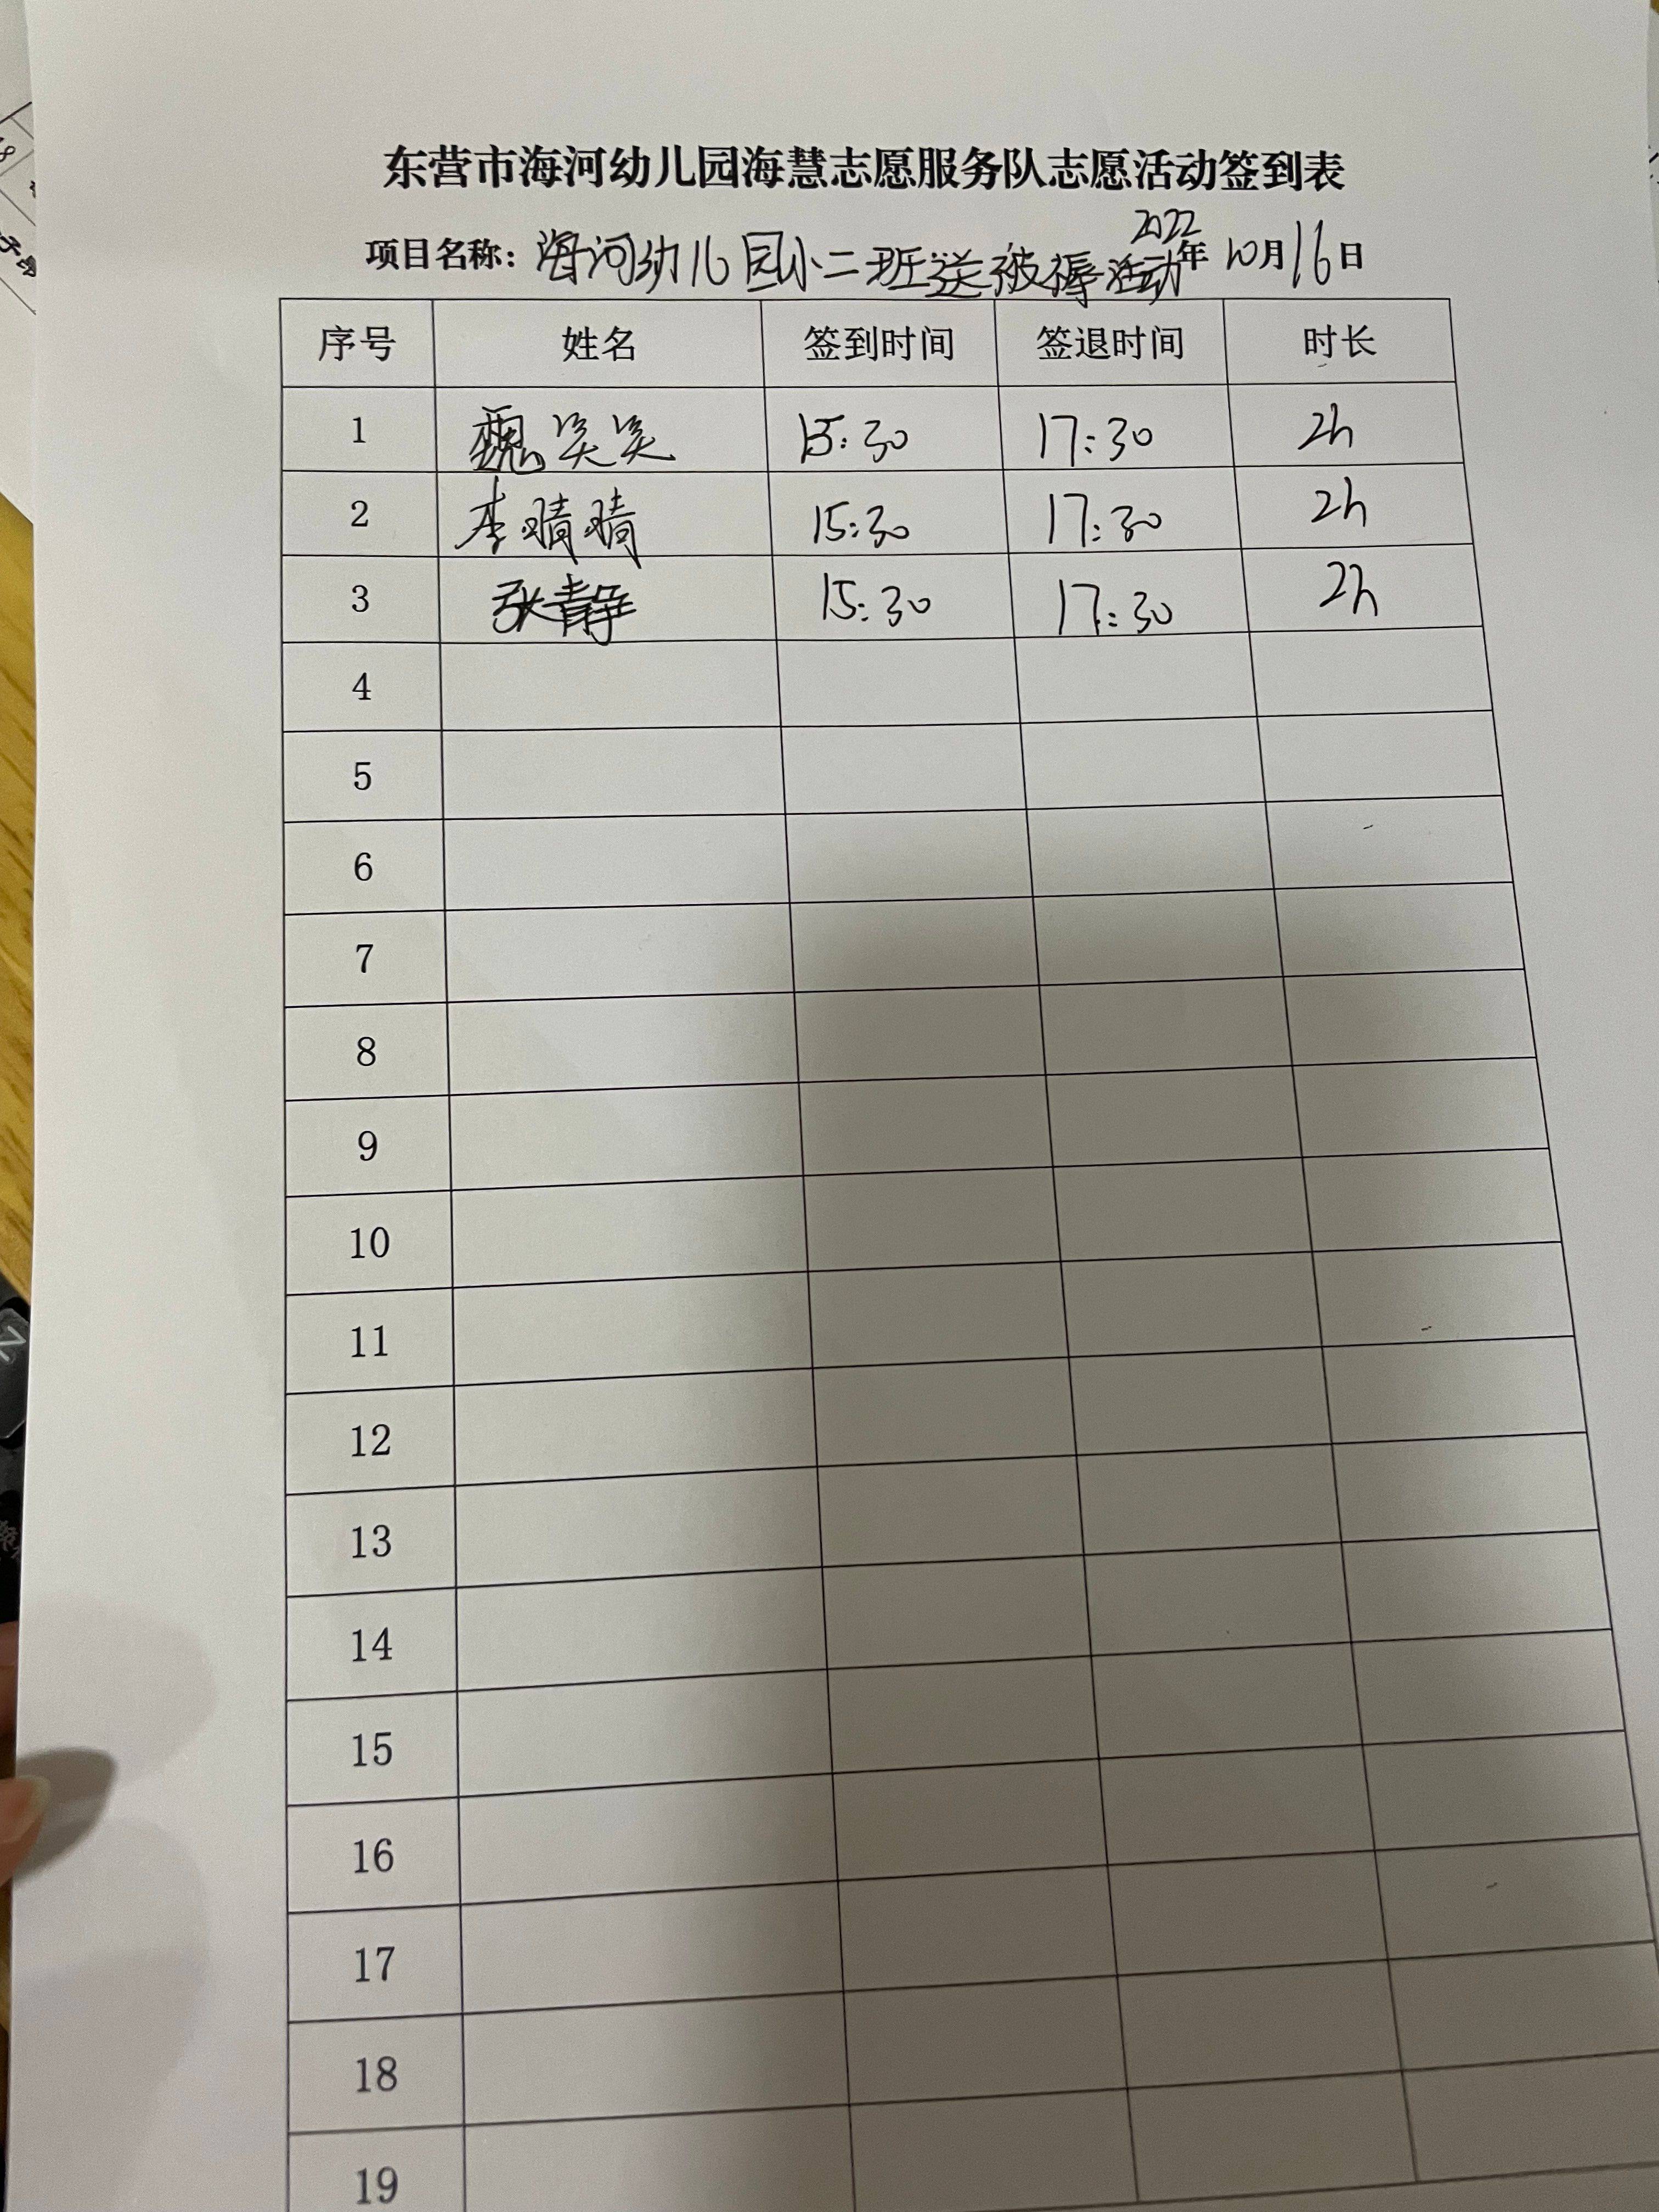 东营市海河幼儿园海慧志愿服务队志愿活动签到表
项目名称：海河幼儿园小二班送被褥活动 2022年10月16日
序号 姓名 签到时间 签退时间 时长
1 魏笑笑 15:30 17:30 2h
2 李晴晴 15:30 17:30 2h
3 张静 15:30 17:30 2h
4
5
6
7
8
9
10
11
12
13
14
15
16
17
18
19